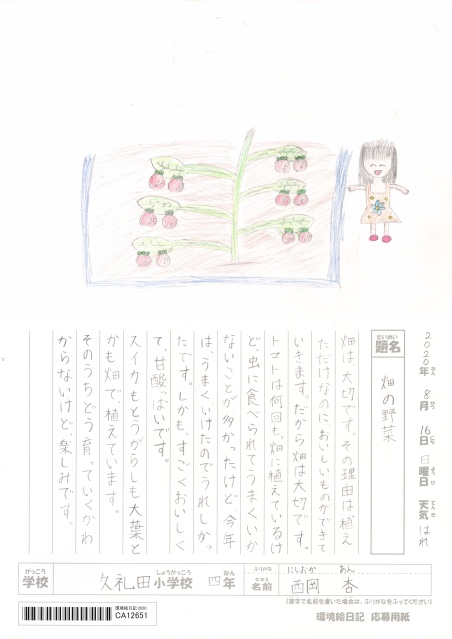 2020年ねん 8月がつ 16日にち 日曜日ようび 天気てんき はれ
だいめい
題名
畑の野菜
畑は大切です。その理由は植え
ただけなのにおいしいものができて
いきます。だから畑は大切です。
トマトは何回も、畑に植えているけ
ど、虫に食べられてうまくいか
ないことが多かったけど、今年
は、うまくいけたのでうれしかっ
たです。しかも、すごくおいしく
て、甘酸っぱいです。
スイカもとうがらしも大葉と
かも畑で、植えています。
そのうちどう育っていくかわ
からないけど、楽しみです。
がっこう
学校
久礼田小学校 しょうがっこう 四年 ねん
ふりがな
にしおか あん
なまえ
名前
西岡 杏
(漢字で名前を書いた場合は、ふりがなをふってください)
環境絵日記 2020
CA12651
環境絵日記 応募用紙